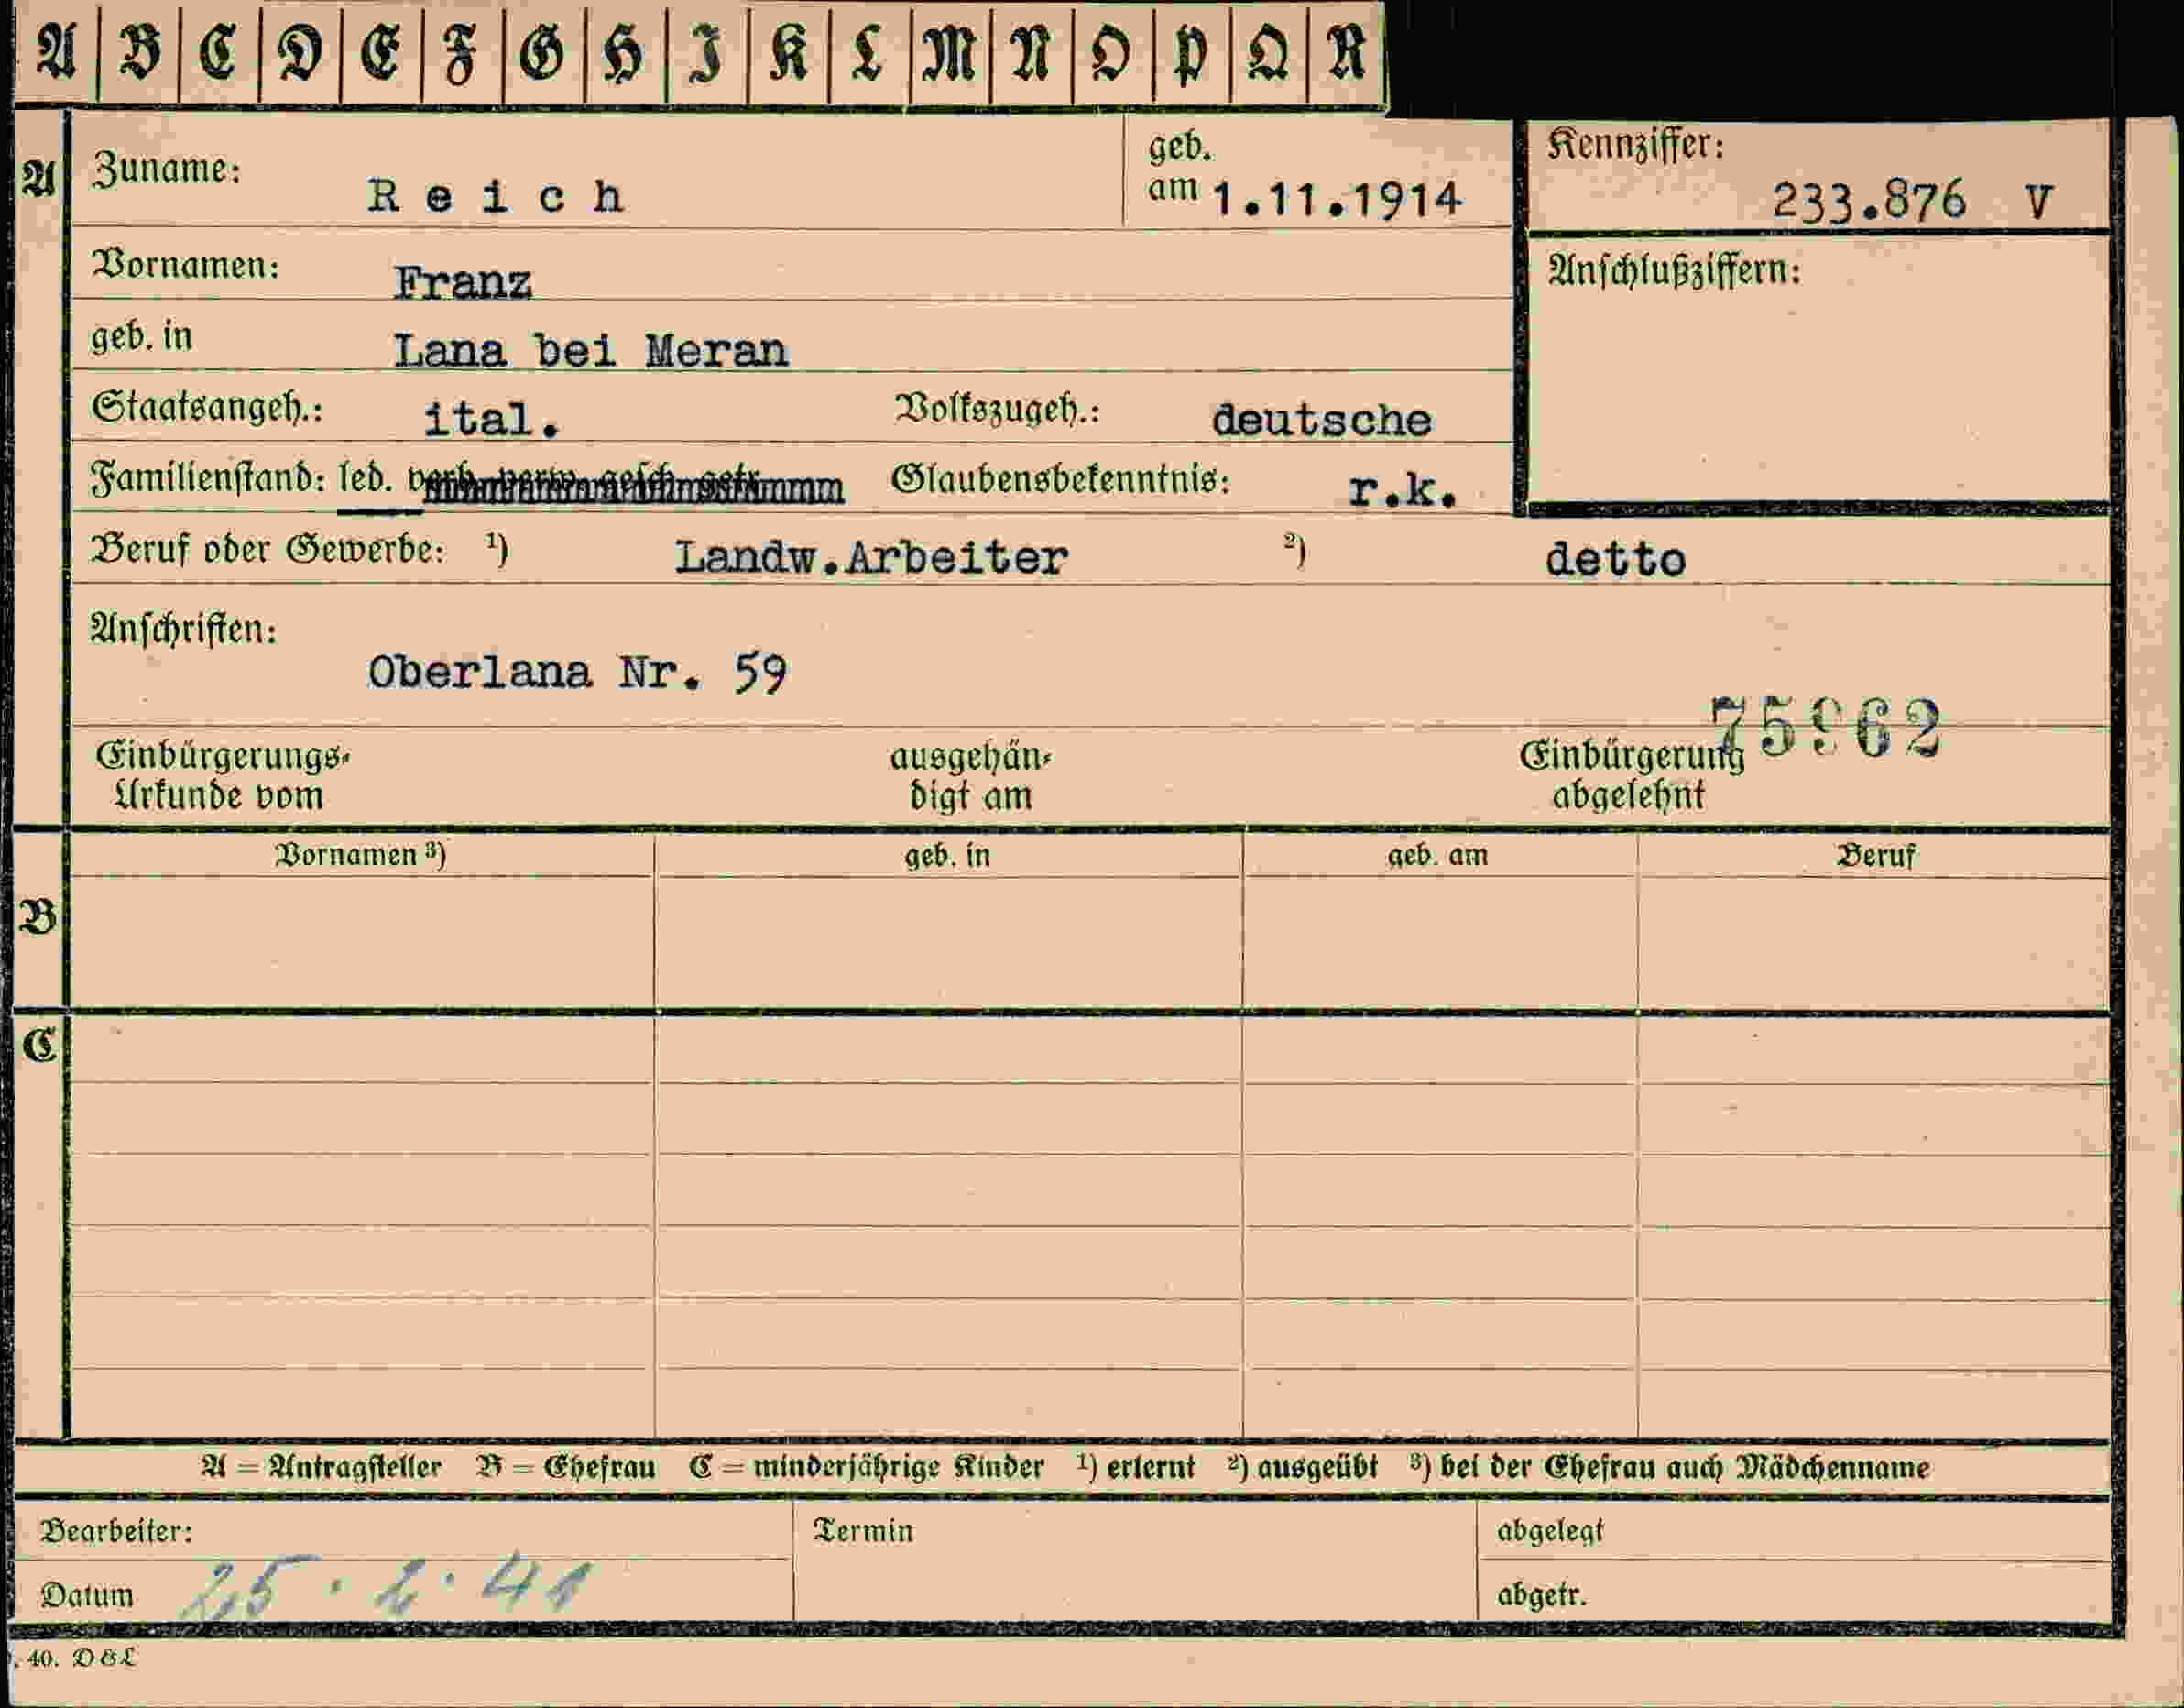 A B C D E F G H J K L M N O P Q R
A
Zuname: R e i c h
geb. am 1.11.1914
Kennziffer: 233.876 V
Vornamen: Franz
Anschlußziffern:
geb. in Lana bei Meran
Staatsangeh.: ital. Volkszugeh.: deutsche
Familienstand: led. verh. verw. gesch. getr. Glaubensbekenntnis: r.k.
Beruf oder Gewerbe: ¹) Landw.Arbeiter ²) detto
Anschriften:
Oberlana Nr. 59
75962
Einbürgerungs-
Urkunde vom
ausgehän-
digt am
Einbürgerung
abgelehnt
B
Vornamen ³) geb. in geb. am Beruf
C
A = Antragsteller B = Ehefrau C = minderjährige Kinder ¹) erlernt ²) ausgeübt ³) bei der Ehefrau auch Mädchenname
Bearbeiter: Termin abgelegt
Datum 25.2.41 abgetr.
. 40. D & L